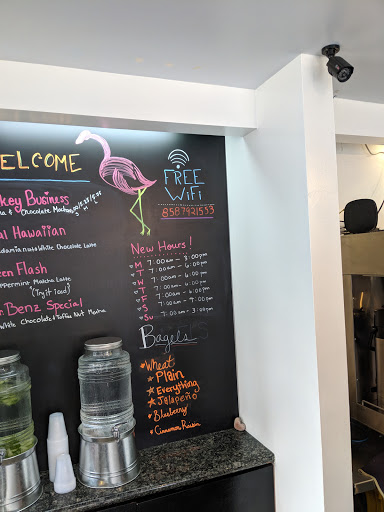 WELCOME
key Business
& Chocolate
al Hawaiian
adamia nut & White Chocolate Latte
een Flash
eppermint Matcha Latte
(Try it iced)
r. Benz Special
White Chocolate & Toffee Nut Mocha
FREE
WiFi
8587921553
New Hours!
M 7:00am - 3:00pm
T 7:00am - 6:00pm
W 7:00am - 6:00pm
T 7:00am - 6:00pm
F 7:00am - 6:00pm
S 7:00am - 4:00pm
Su 7:00am - 3:00pm
Bagels
Wheat
Plain
Everything
Jalapeño
Blueberry
Cinnamon Raisin